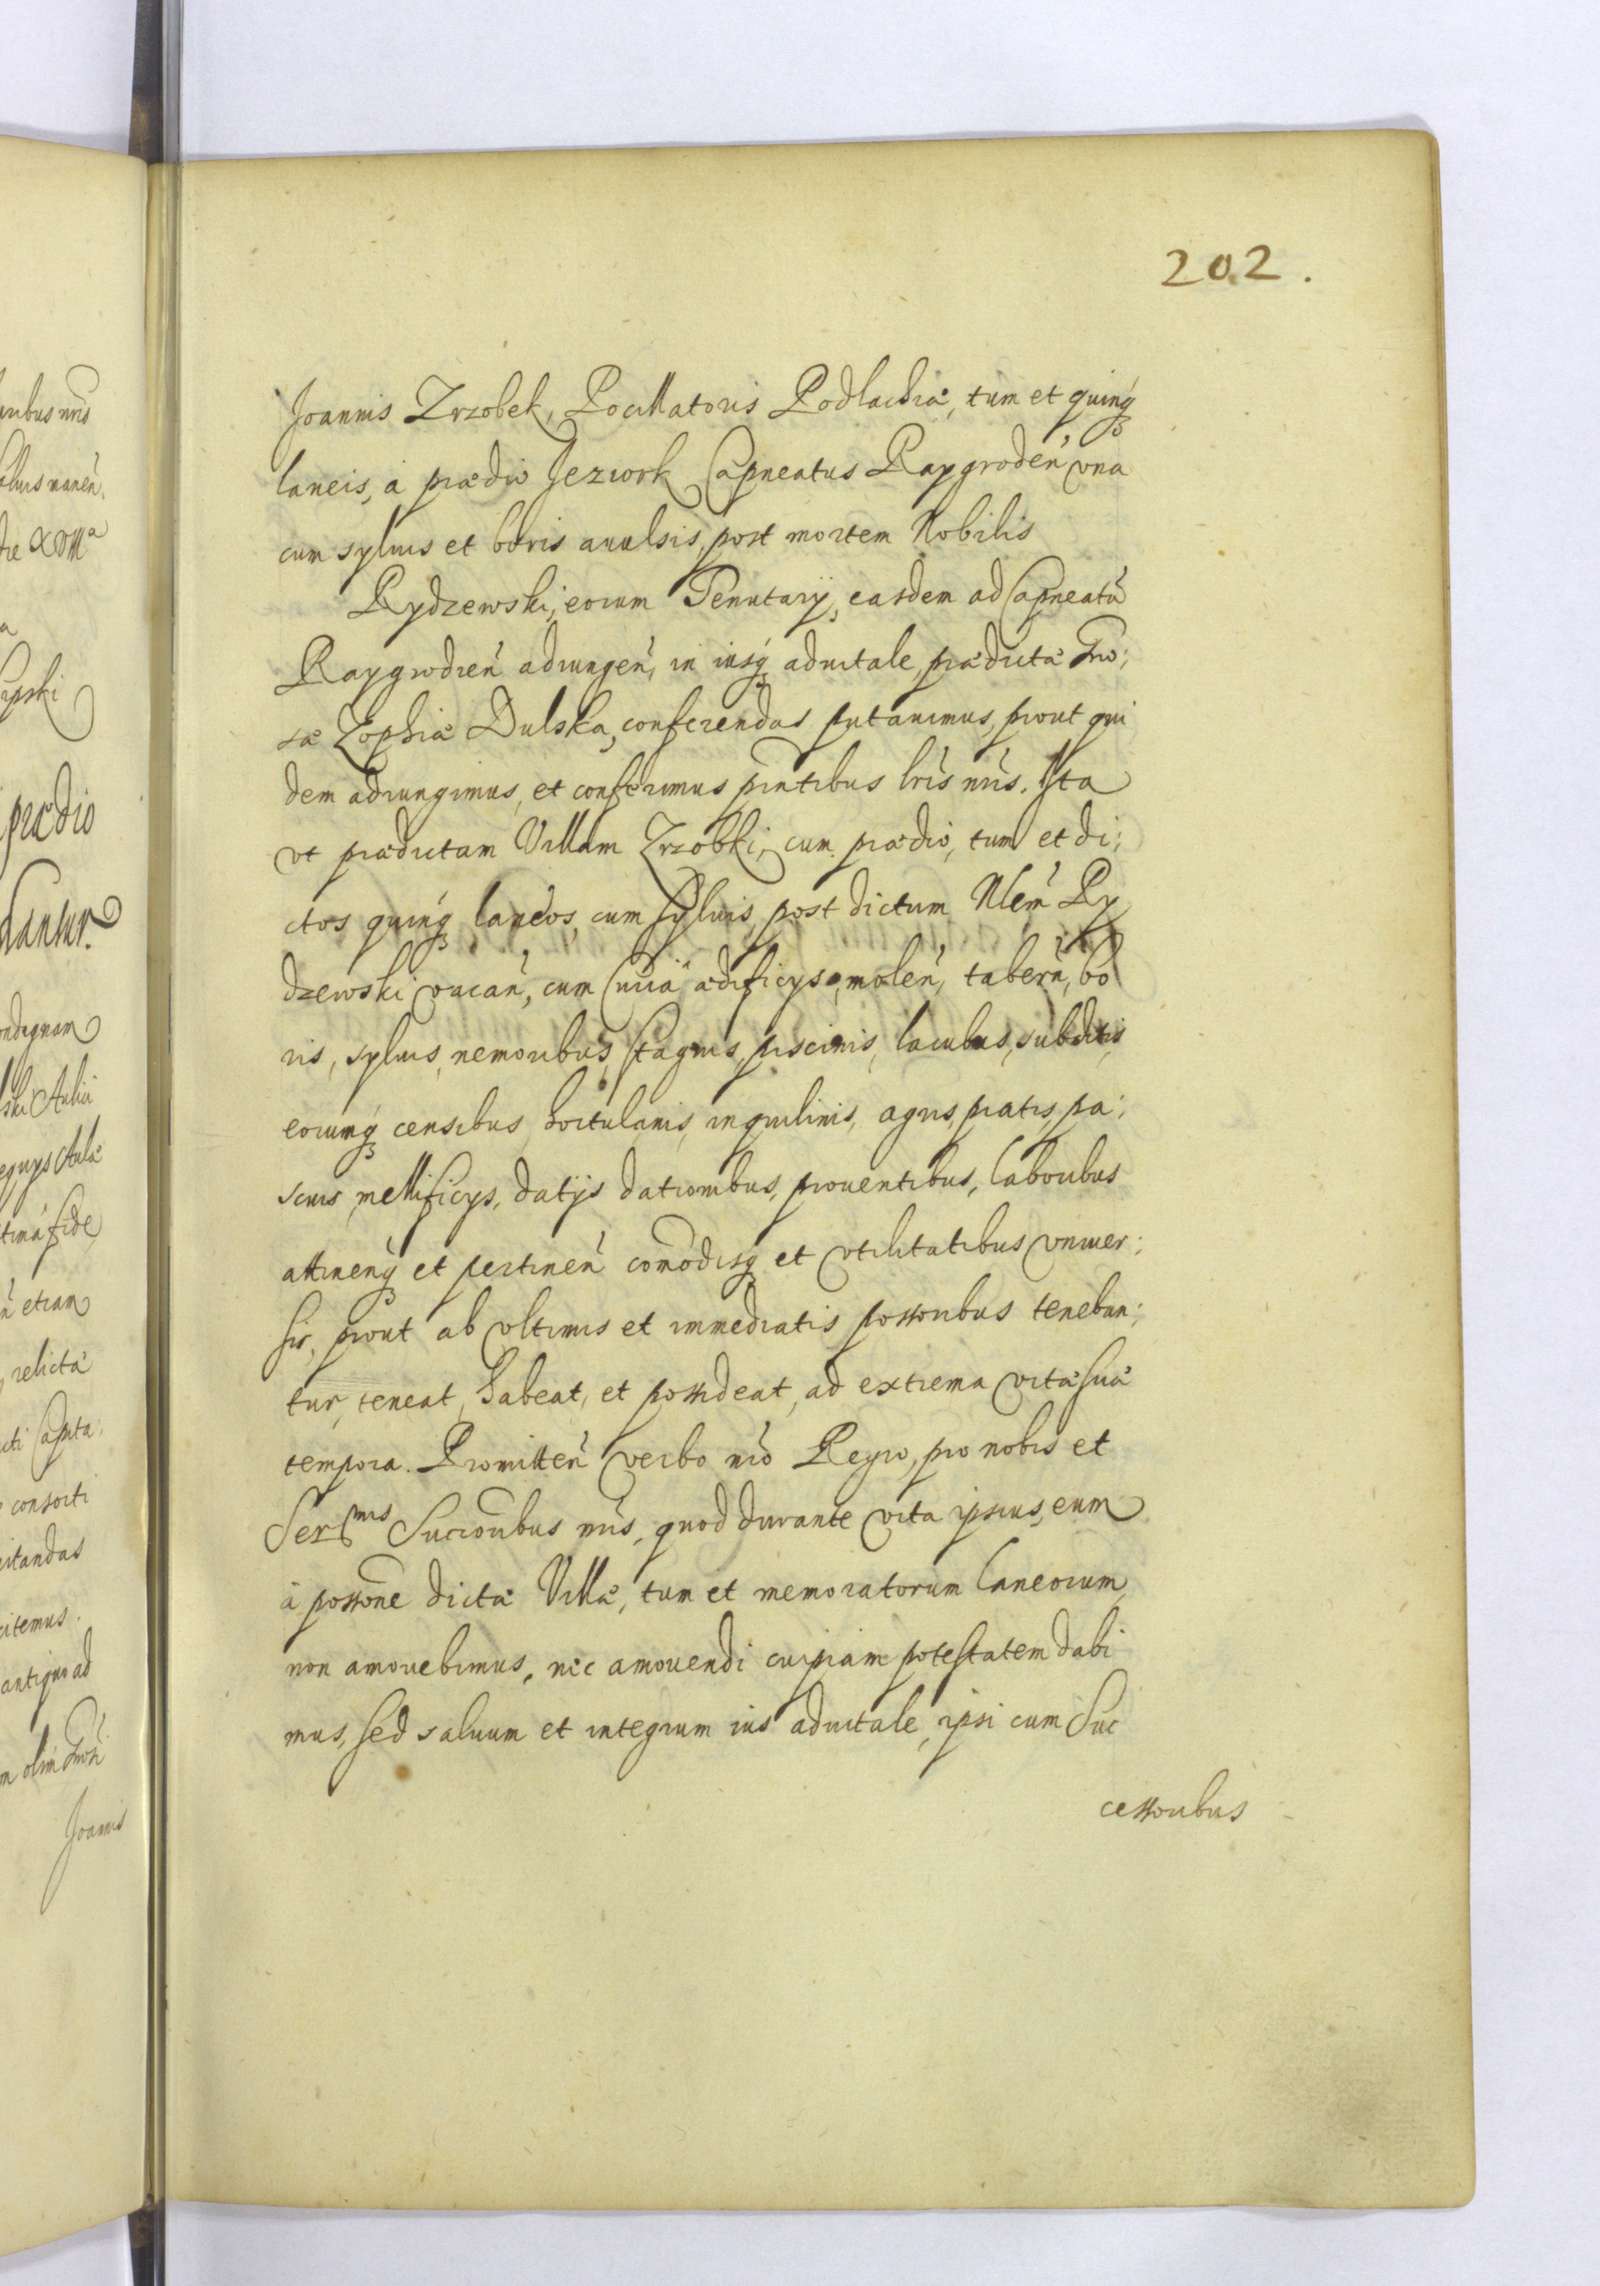 202.
Joannis Zrzobek, Pocillatoris Podlachiæ, tum et quinq́
laneis, à prædio Jeziork Capneatus Raygroden̄ vna
cum syluis et boris auulsis, post mortem Nobilis
Rydzewski, eorum Tenutarij, easdem ad Capneatū
Raygrodien̄ adiungen̄, in iusq́ aduitale, prædictæ Gno;
sæ Zophiæ Dulska, conferendas putauimus, prout qui
dem adiungimus, et conferimus pn̄tibus lr̄is nr̄is. Ita
vt prædictam Villam Zrzobki, cum prædio, tum et di;
ctos quinq́ laneos, cum syluis, post dictum Nlem̄ Ry
dzewski vacan̄, cum Curia ædificijs, molen̄, tabern̄, bo
ris, syluis, nemoribus, stagnis, piscinis, lacubus, subditis,
eorumq́ censibus, hortulanis, inquilinis, agris, pratis, pa;
scuis, mellificijs, datijs dationibus, prouentibus, laboribus
attinenq́ et pertinen̄ com̄odisq́ et vtilitatibus vniuer;
sis, prout ab vltimis et immediatis possoribus tenebun;
tur, teneat, habeat, et possideat, ad extrema vitæ suæ
tempora. Promitten̄ verbo nr̄o Regio, pro nobis et
Ser^mis Succ̄oribus nr̄is, quod durante vita ipsius, eum
à poss̄one dictæ Villæ, tum et memoratorum laneorum,
non amouebimus, nec amouendi cuipiam potestatem dabi
mus, sed saluum et integrum ius aduitale, ipsi cum Suc
cessoribus